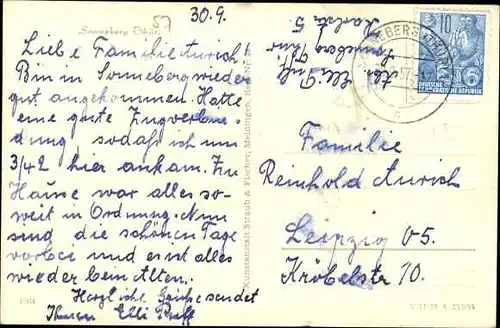 30.9.
57
Sonneberg Thür.
Liebe Familie Aurich!
Bin in Sonneberg wieder
gut angekommen. Hatte
eine gute Zugverbin-
dung, sodaß ich um
3/4 2 hier ankam. Zu
Hause war alles so-
weit in Ordnung. Nun
sind die schönen Tage
vorbei und es ist alles
wieder beim Alten.
Herzliche Grüße sendet
Ihnen Elli
Kunstanstalt Straub & Fischer, Meiningen
Abs. Elli
Sonneberg Thür
5
10
DEUTSCHE
DEMOKRATISCHE REPUBLIK
Familie
Reinhold Aurich
Leipzig O5.
Kröbelstr 10.